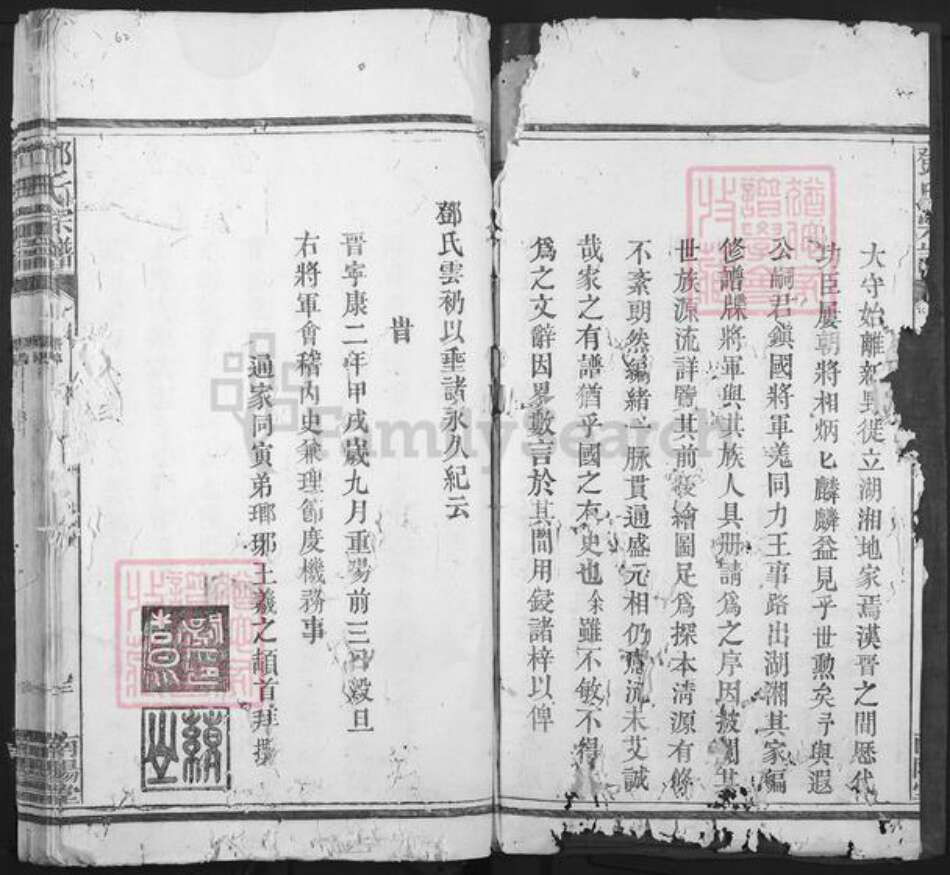 大守始離新野徙立湖湘地家焉漢晉之間歷代
功臣屢朝將相炳匕麟麟益見乎世勲矣予與遐
公嗣君鎮國將軍羗同力王事路出湖湘其家編
修譜牒將軍與其族人具册請為之序因披閱其
世族源流詳覽其前後繪圖足為探本清源有條
不紊朗然編緒一脉貫通盛元相仍膺流未艾誠
哉家之有譜猶乎國之有史也余雖不敏不得
為之文辭因畧數言於其間用鋟諸梓以俾
鄧氏雲礽以垂諸永久紀云
旹
晉寧康二年甲戌歲九月重陽前三日穀旦
右將軍會稽內史兼理節度機務事
通家同寅弟瑯琊王羲之頓首拜撰
鄧氏宗譜
南陽堂
FamilySearch